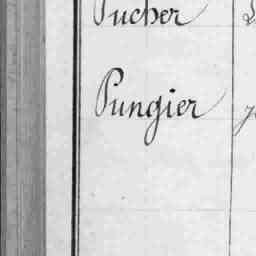 Pucher
Pungier